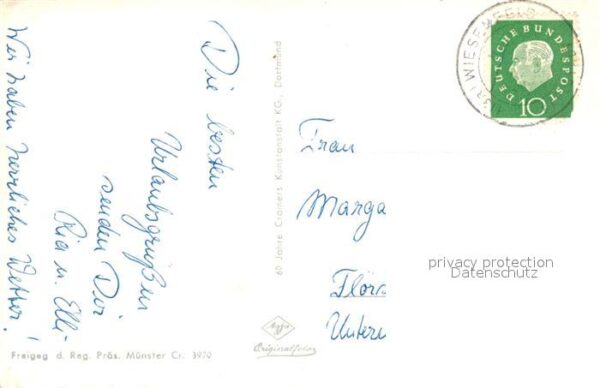 Die besten
Urlaubsgrüße
senden Dir
Ria u. Elli
Wir haben herrliches Wetter!
Freigeg d. Reg. Präs. Münster Cr. 3970
60 Jahre Cramers Kunstanstalt KG., Dortmund
Agfa
Originalfoto
WIESENFELD
DEUTSCHE BUNDESPOST
10
Frau
Marga
privacy protection
Datenschutz
Untere